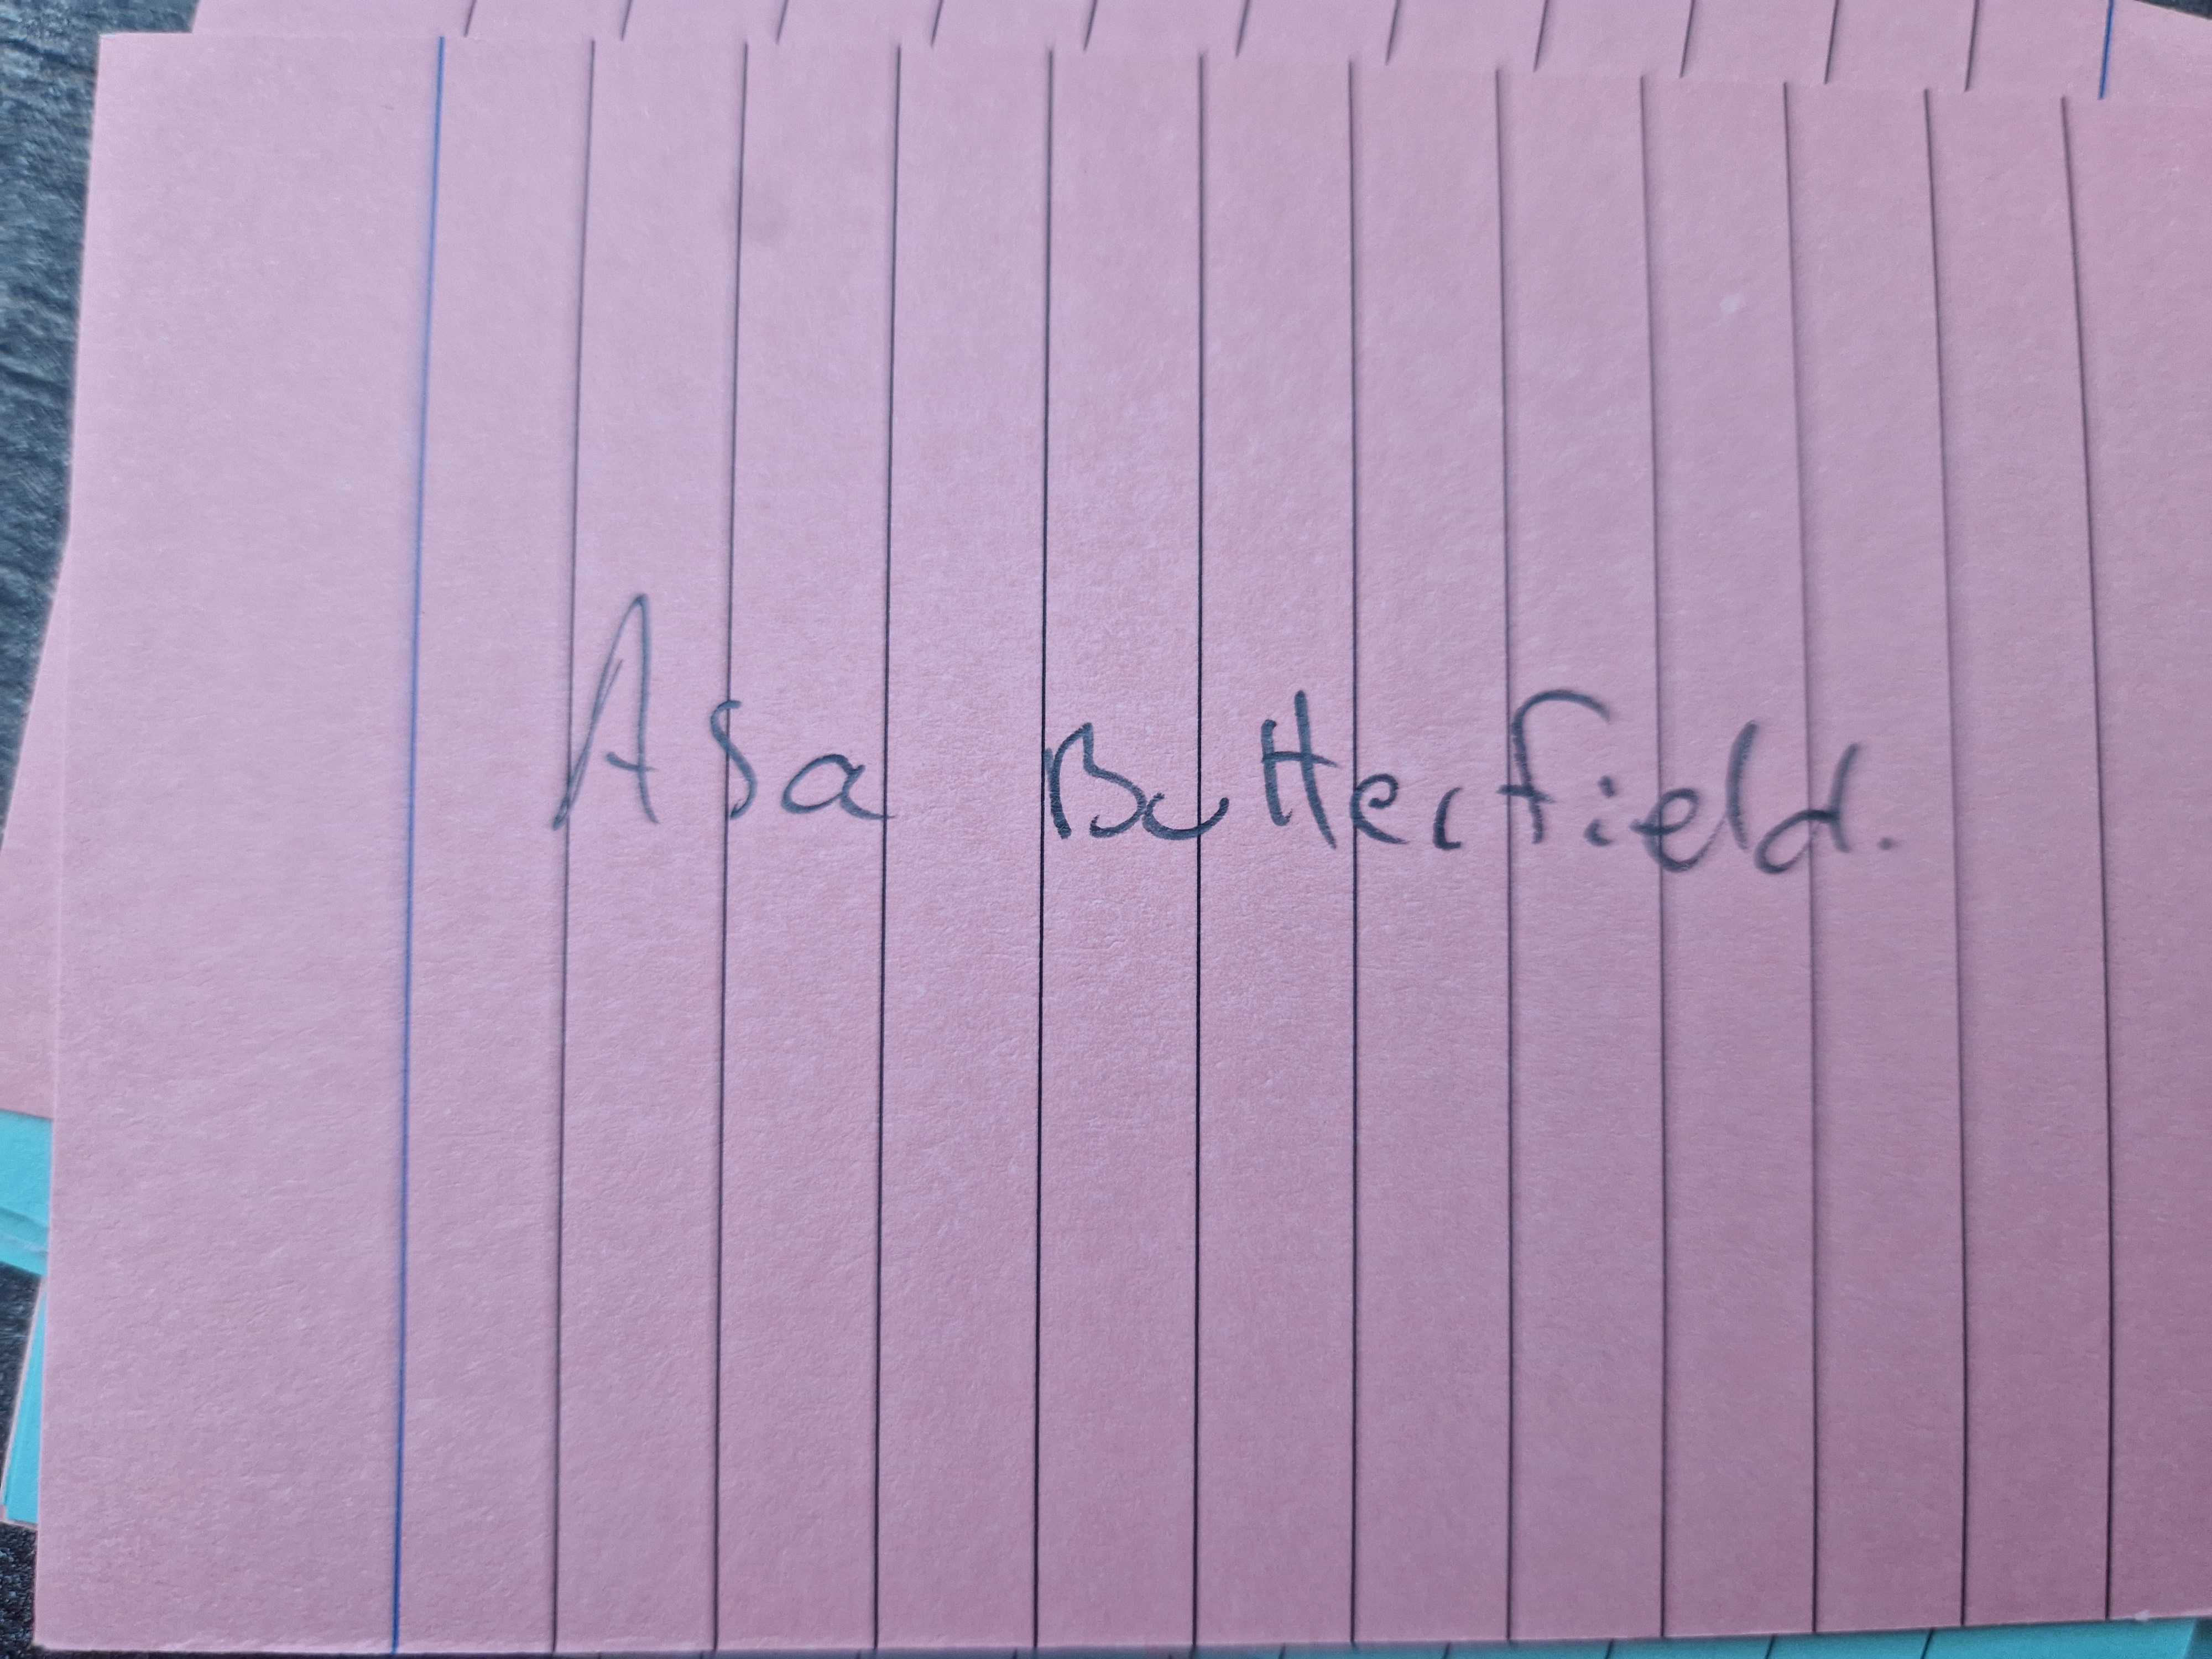 Asa Butterfield.